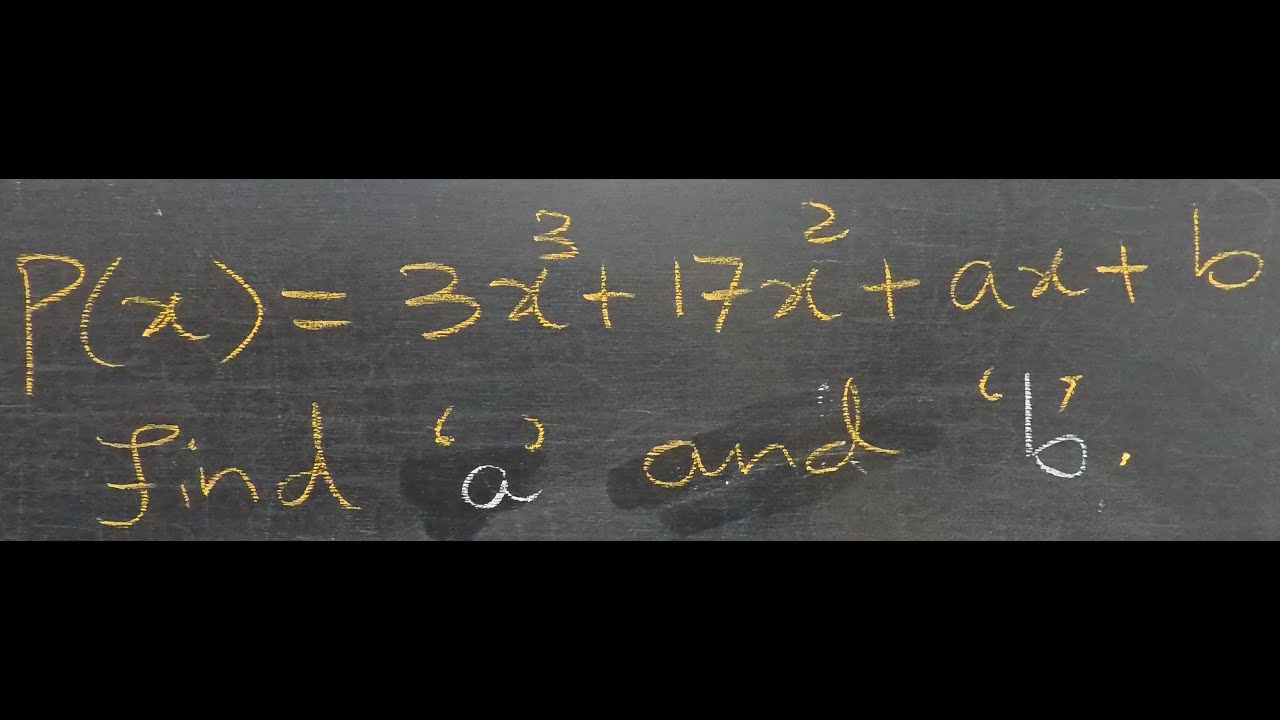 P(x) = 3x³ + 17x² + ax + b
find 'a' and 'b'.